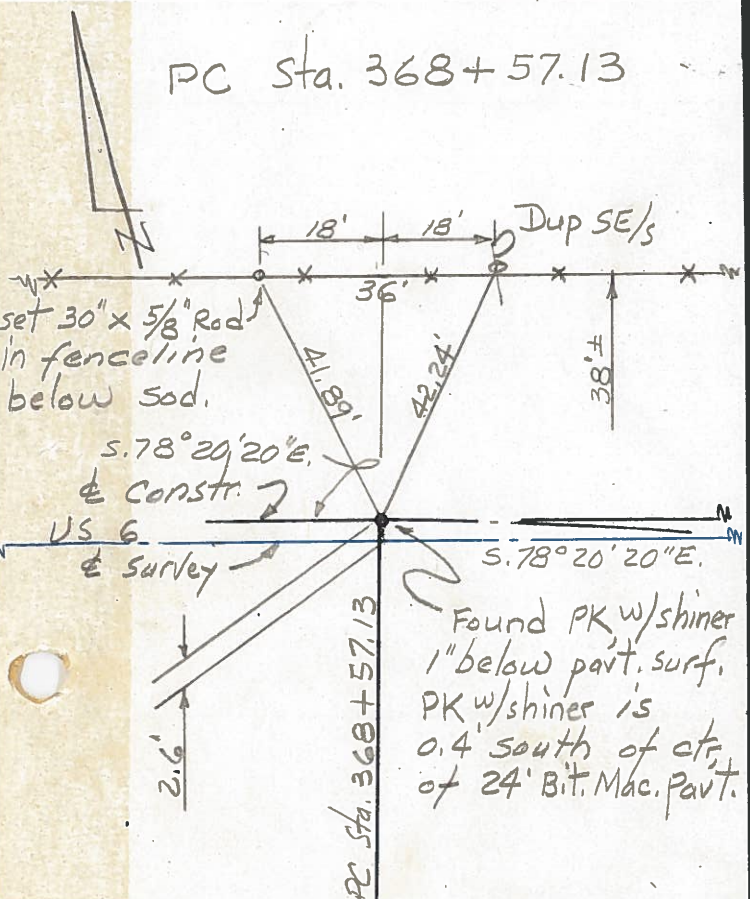 PC Sta. 368+57.13
N
18'
18'
Dup SE/s
36'
set 30" x 5/8" Rod
in fenceline
below sod.
41.89'
42.24'
38'±
S.78°20'20"E.
℄ Constr.
US 6
℄ Survey
S.78°20'20"E.
2.6'
PC Sta. 368+57.13
Found PK w/shiner
1" below pav't. surf.
PK w/shiner is
0.4' south of ctr.
of 24' Bit. Mac. Pav't.